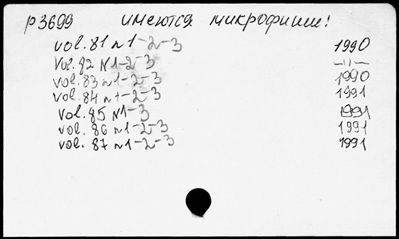 р3699 имеются микрофиши!
vol. 81 N1-2-3 1990
Vol. 82 N1-2-3 -"-
vol. 83 N1-2-3 1990
vol. 84 N1-2-3 1991
Vol. 85 N1-3 1991
vol. 86 N1-2-3 1991
vol. 87 N1-2-3 1991